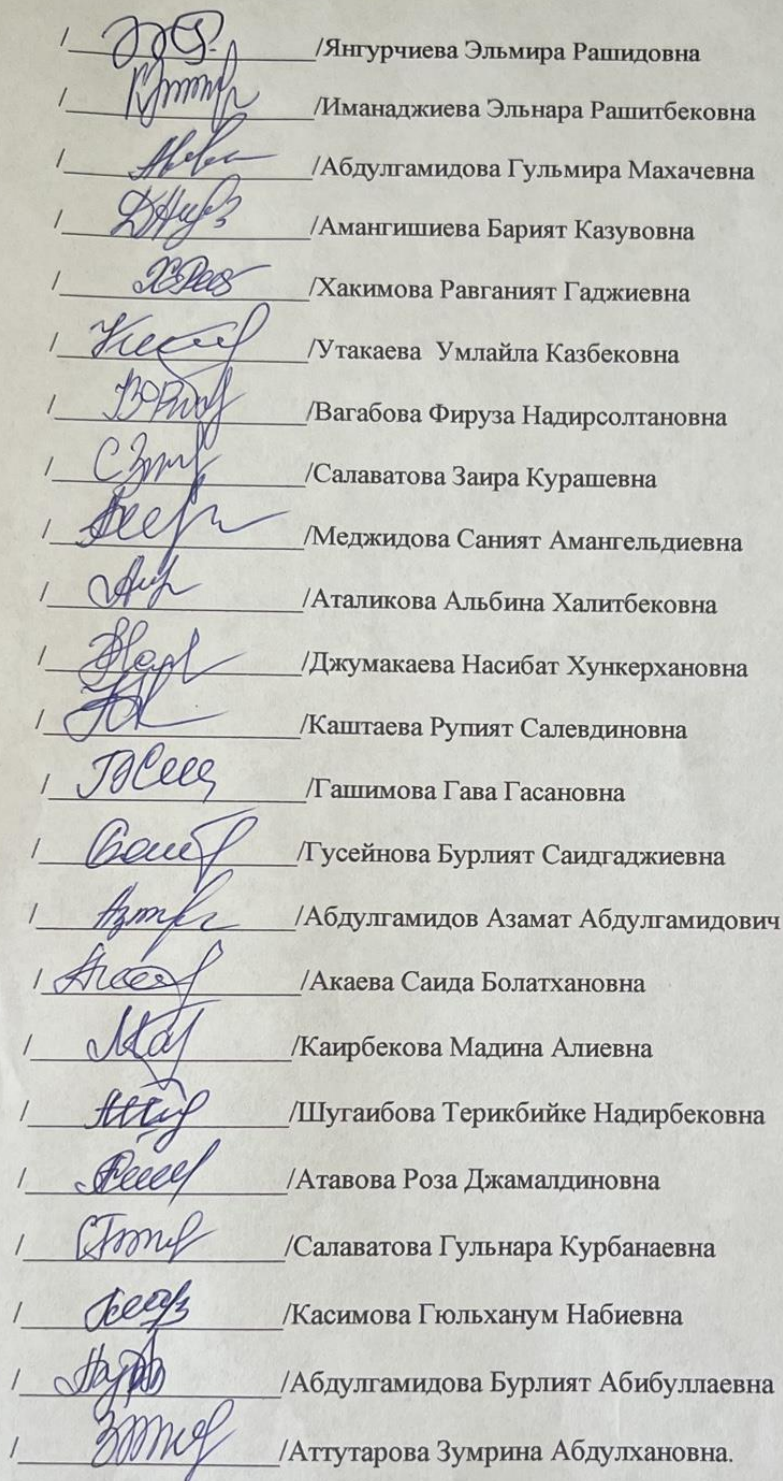 /____________/Янгурчиева Эльмира Рашидовна
/____________/Иманаджиева Эльнара Рашитбековна
/____________/Абдулгамидова Гульмира Махачевна
/____________/Амангишиева Барият Казувовна
/____________/Хакимова Равганият Гаджиевна
/____________/Утакаева Умлайла Казбековна
/____________/Вагабова Фируза Надирсолтановна
/____________/Салаватова Заира Курашевна
/____________/Меджидова Саният Амангельдиевна
/____________/Аталикова Альбина Халитбековна
/____________/Джумакаева Насибат Хункерхановна
/____________/Каштаева Рупият Салевдиновна
/____________/Гашимова Гава Гасановна
/____________/Гусейнова Бурлият Саидгаджиевна
/____________/Абдулгамидов Азамат Абдулгамидович
/____________/Акаева Саида Болатхановна
/____________/Каирбекова Мадина Алиевна
/____________/Шугаибова Терикбийке Надирбековна
/____________/Атавова Роза Джамалдиновна
/____________/Салаватова Гульнара Курбанаевна
/____________/Касимова Гюльханум Набиевна
/____________/Абдулгамидова Бурлият Абибуллаевна
/____________/Аттутарова Зумрина Абдулхановна.